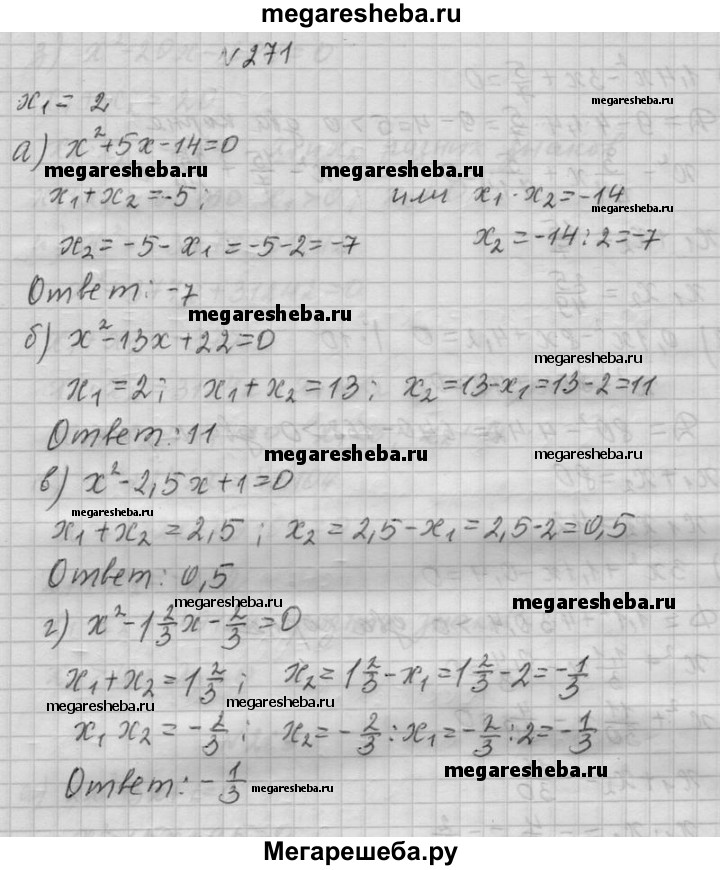 megaresheba.ru
№271
x₁ = 2
megaresheba.ru
а) x² + 5x - 14 = 0
megaresheba.ru
megaresheba.ru
x₁ + x₂ = -5; или x₁ · x₂ = -14
megaresheba.ru
x₂ = -5 - x₁ = -5 - 2 = -7 x₂ = -14 : 2 = -7
Ответ: -7
megaresheba.ru
б) x² - 13x + 22 = 0
megaresheba.ru
x₁ = 2; x₁ + x₂ = 13; x₂ = 13 - x₁ = 13 - 2 = 11
Ответ: 11
megaresheba.ru
megaresheba.ru
в) x² - 2,5x + 1 = 0
megaresheba.ru
x₁ + x₂ = 2,5; x₂ = 2,5 - x₁ = 2,5 - 2 = 0,5
Ответ: 0,5
megaresheba.ru
megaresheba.ru
г) x² - 1 2/3 x - 2/3 = 0
x₁ + x₂ = 1 2/3; x₂ = 1 2/3 - x₁ = 1 2/3 - 2 = -1/3
megaresheba.ru
megaresheba.ru
x₁ x₂ = -2/3; x₂ = -2/3 : x₁ = -2/3 : 2 = -1/3
megaresheba.ru
Ответ: -1/3
megaresheba.ru
Мегарешеба.ру